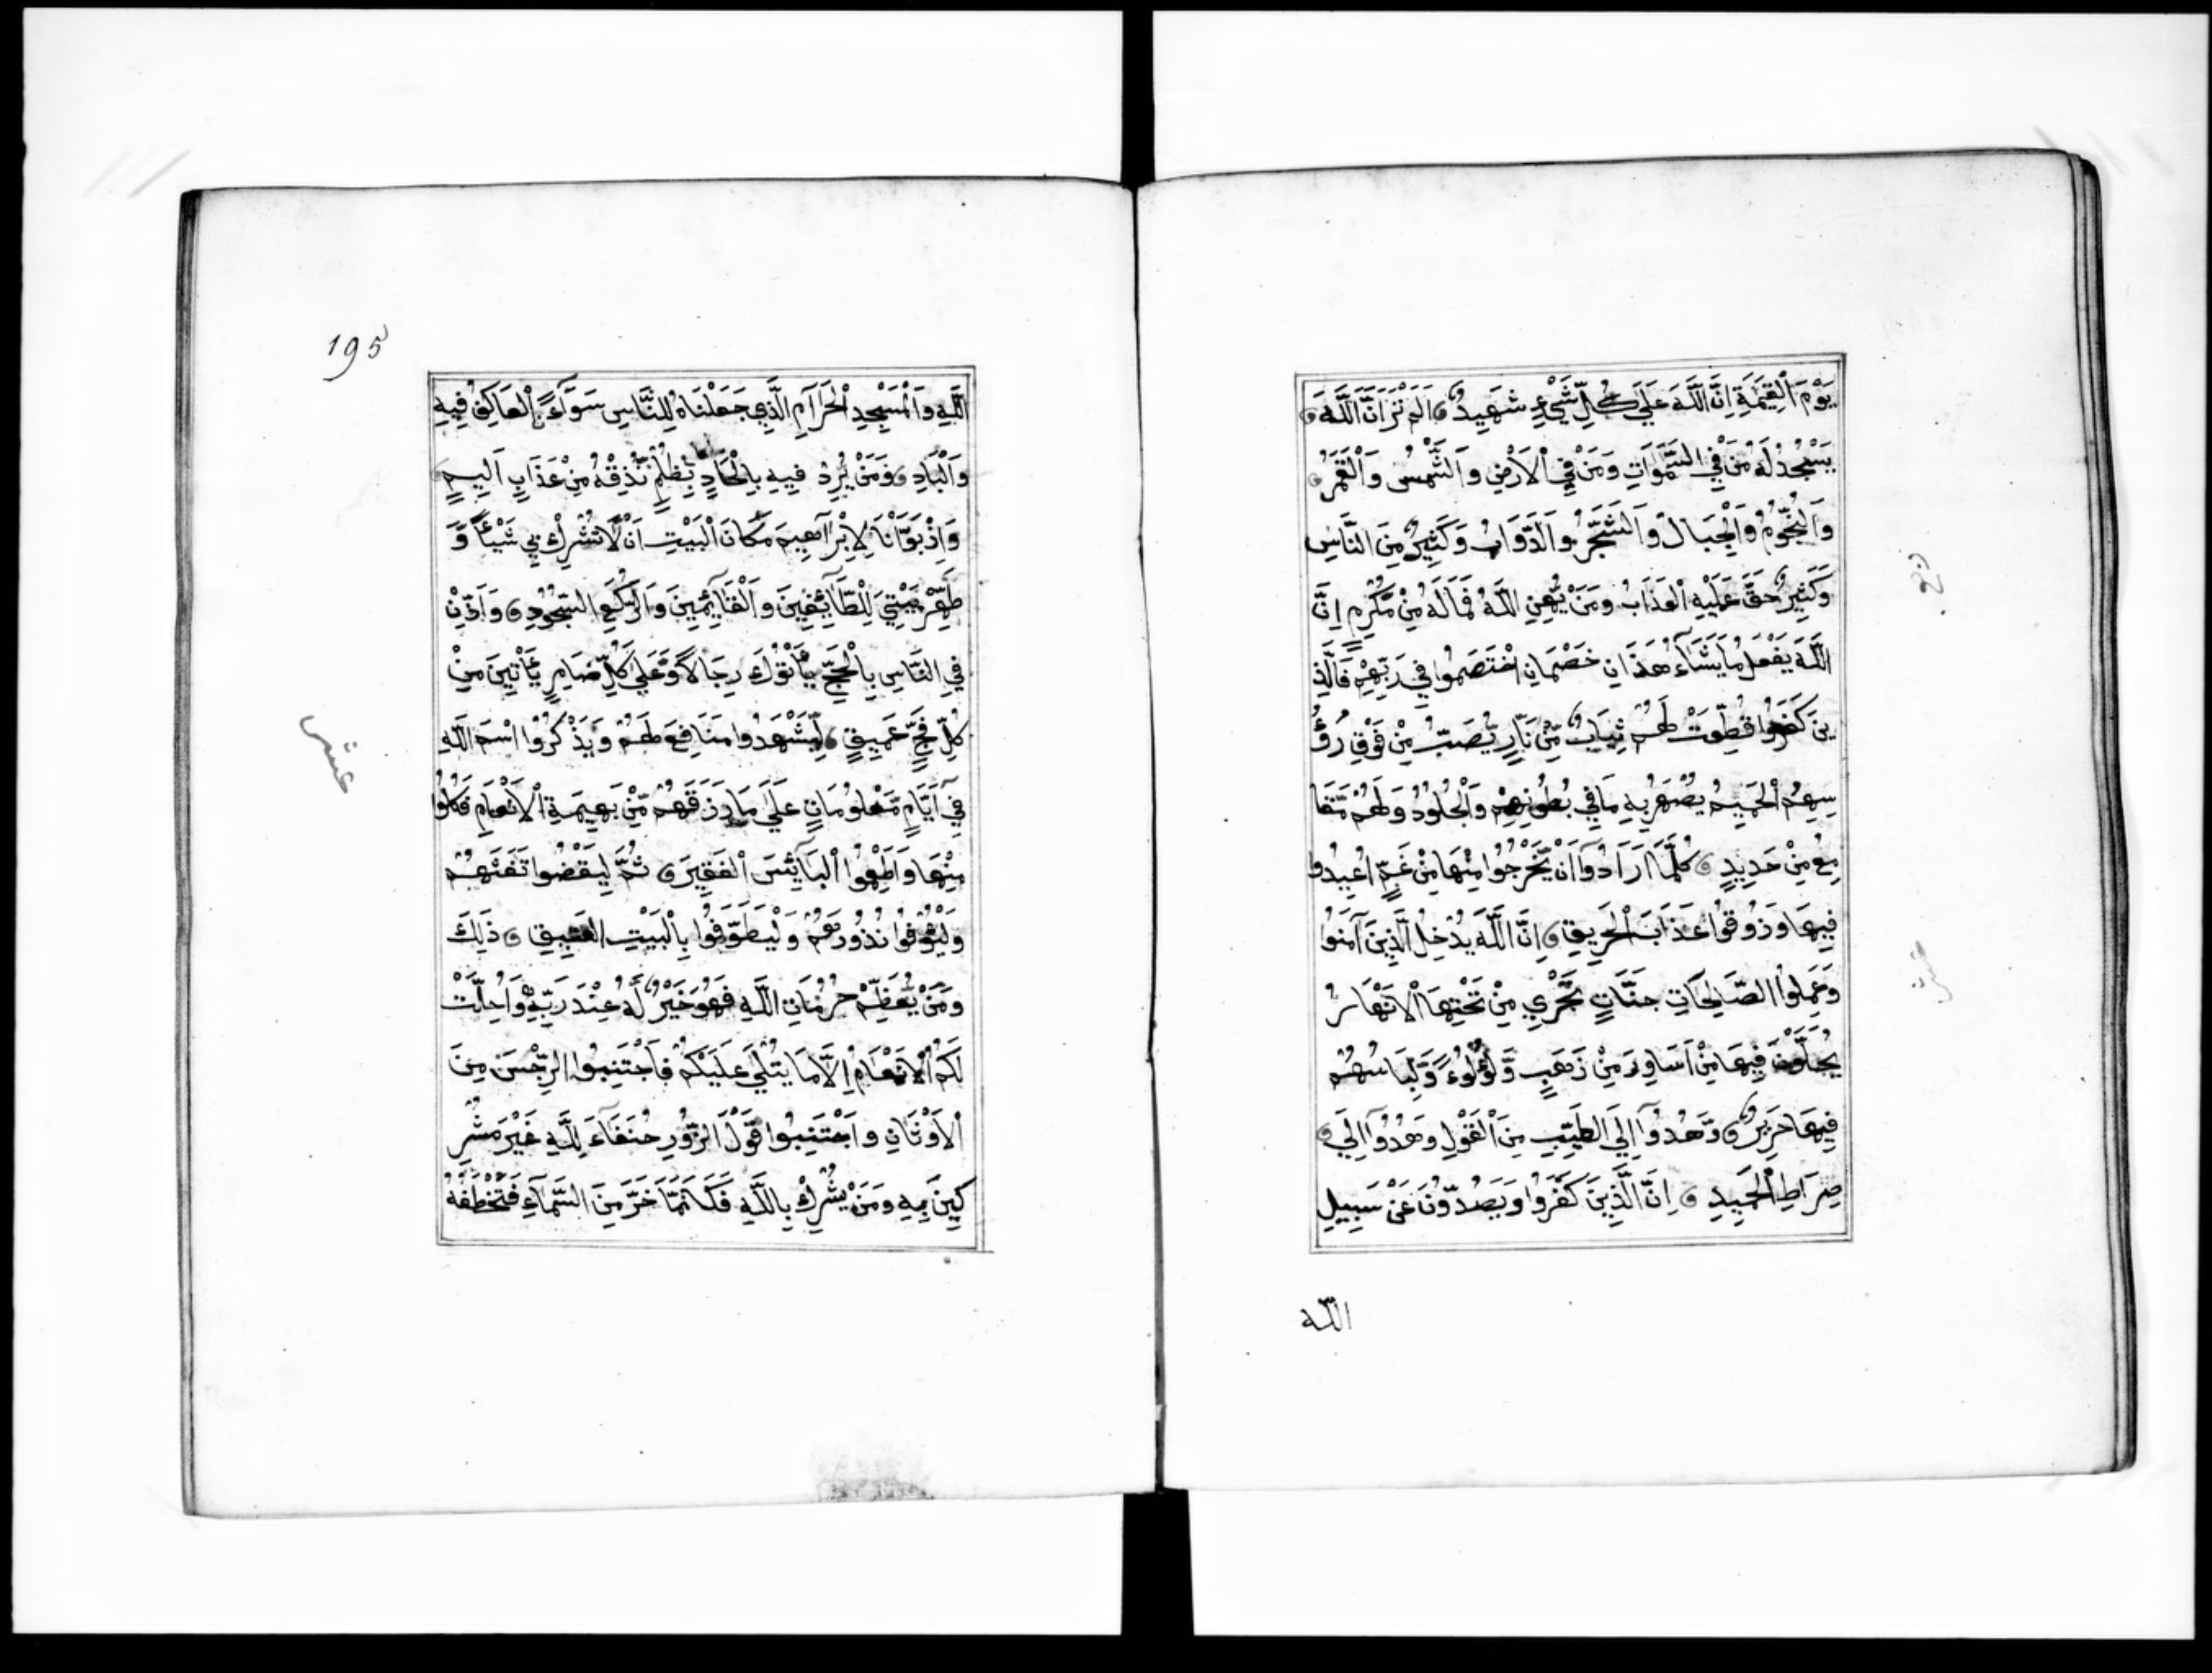 يَوْمَ الْقِيَمَةِ اِنَّ اللَّهَ عَلَي كُلِّ شَيْءٍ شَهِيدٌ اَلَمْ تَرَ اَنَّ اللَّهَ
يَسْجُدُ لَهُ مَنْ فِي السَّمَوَاتِ وَمَنْ فِي الْاَرْضِ وَالشَّمْسُ وَالْقَمَرُ
وَالنُّجُومُ وَالْجِبَالُ وَالشَّجَرُ وَالدَّوَابُّ وَكَثِيرٌ مِنَ النَّاسِ
وَكَثِيرٌ حَقَّ عَلَيْهِ الْعَذَابُ وَمَنْ يُهِنِ اللَّهُ فَمَا لَهُ مِنْ مُكْرِمٍ اِنَّ
اللَّهَ يَفْعَلُ مَا يَشَآءُ هَذَانِ خَصْمَانِ اخْتَصَمُوا فِي رَبِّهِمْ فَالَّذِ
ينَ كَفَرُوا قُطِّعَتْ لَهُمْ ثِيَابٌ مِّنْ نَّارٍ يُصَبُّ مِنْ فَوْقِ رُؤُ
سِهِمُ الْحَمِيمُ يُصْهَرُ بِهِ مَا فِي بُطُونِهِمْ وَالْجُلُودُ وَلَهُمْ مَّقَا
مِعُ مِنْ حَدِيدٍ كُلَّمَا اَرَادُوآ اَنْ يَّخْرُجُوا مِنْهَا مِنْ غَمٍّ اُعِيدُوا
فِيهَا وَذُوقُوا عَذَابَ الْحَرِيقِ اِنَّ اللَّهَ يُدْخِلُ الَّذِينَ آمَنُوا
وَعَمِلُوا الصَّالِحَاتِ جَنَّاتٍ تَجْرِي مِنْ تَحْتِهَا الْاَنْهَارُ
يُحَلَّوْنَ فِيهَا مِنْ اَسَاوِرَ مِنْ ذَهَبٍ وَّلُؤْلُوءً وَّلِبَاسُهُمْ
فِيهَا حَرِيرٌ وَهُدُوآ اِلَي الطَّيِّبِ مِنَ الْقَوْلِ وَهُدُوآ اِلَي
صِرَاطِ الْحَمِيدِ اِنَّ الَّذِينَ كَفَرُوا وَيَصُدُّونَ عَنْ سَبِيلِ
الله
195
اللَّهِ وَالْمَسْجِدِ الْحَرَآمِ الَّذِي جَعَلْنَاهُ لِلنَّاسِ سَوَآءً الْعَاكِفُ فِيهِ
وَالْبَادِ وَمَنْ يُرِدْ فِيهِ بِاِلْحَادٍ بِظُلْمٍ نُّذِقْهُ مِنْ عَذَابٍ اَلِيمٍ
وَاِذْ بَوَّاْنَا لِاِبْرَآهِيمَ مَكَانَ الْبَيْتِ اَنْ لَّا تُشْرِكْ بِي شَيْئًا وَّ
طَهِّرْ بَيْتِيَ لِلطَّآئِفِينَ وَالْقَآئِمِينَ وَالرُّكَّعِ السُّجُودِ وَاَذِّنْ
فِي النَّاسِ بِالْحَجِّ يَأْتُوكَ رِجَالًا وَّعَلَي كُلِّ ضَامِرٍ يَأْتِينَ مِنْ
كُلِّ فَجٍّ عَمِيقٍ لِّيَشْهَدُوا مَنَافِعَ لَهُمْ وَيَذْكُرُوا اسْمَ اللَّهِ
فِي اَيَّامٍ مَّعْلُومَاتٍ عَلَي مَا رَزَقَهُمْ مِّنْ بَهِيمَةِ الْاَنْعَامِ فَكُلُوا
مِنْهَا وَاَطْعِمُوا الْبَآئِسَ الْفَقِيرَ ثُمَّ لِيَقْضُوا تَفَثَهُمْ
وَلْيُوفُوا نُذُورَهُمْ وَلْيَطَّوَّفُوا بِالْبَيْتِ الْعَتِيقِ ذَلِكَ
وَمَنْ يُعَظِّمْ حُرُمَاتِ اللَّهِ فَهُوَ خَيْرٌ لَّهُ عِنْدَ رَبِّهِ وَاُحِلَّتْ
لَكُمُ الْاَنْعَامُ اِلَّا مَا يُتْلَي عَلَيْكُمْ فَاجْتَنِبُوا الرِّجْسَ مِنَ
الْاَوْثَانِ وَاجْتَنِبُوا قَوْلَ الزُّورِ حُنَفَآءَ لِلَّهِ غَيْرَ مُشْرِ
كِينَ بِهِ وَمَنْ يُشْرِكْ بِاللَّهِ فَكَاَنَّمَا خَرَّ مِنَ السَّمَآءِ فَتَخْطَفُهُ
عشر